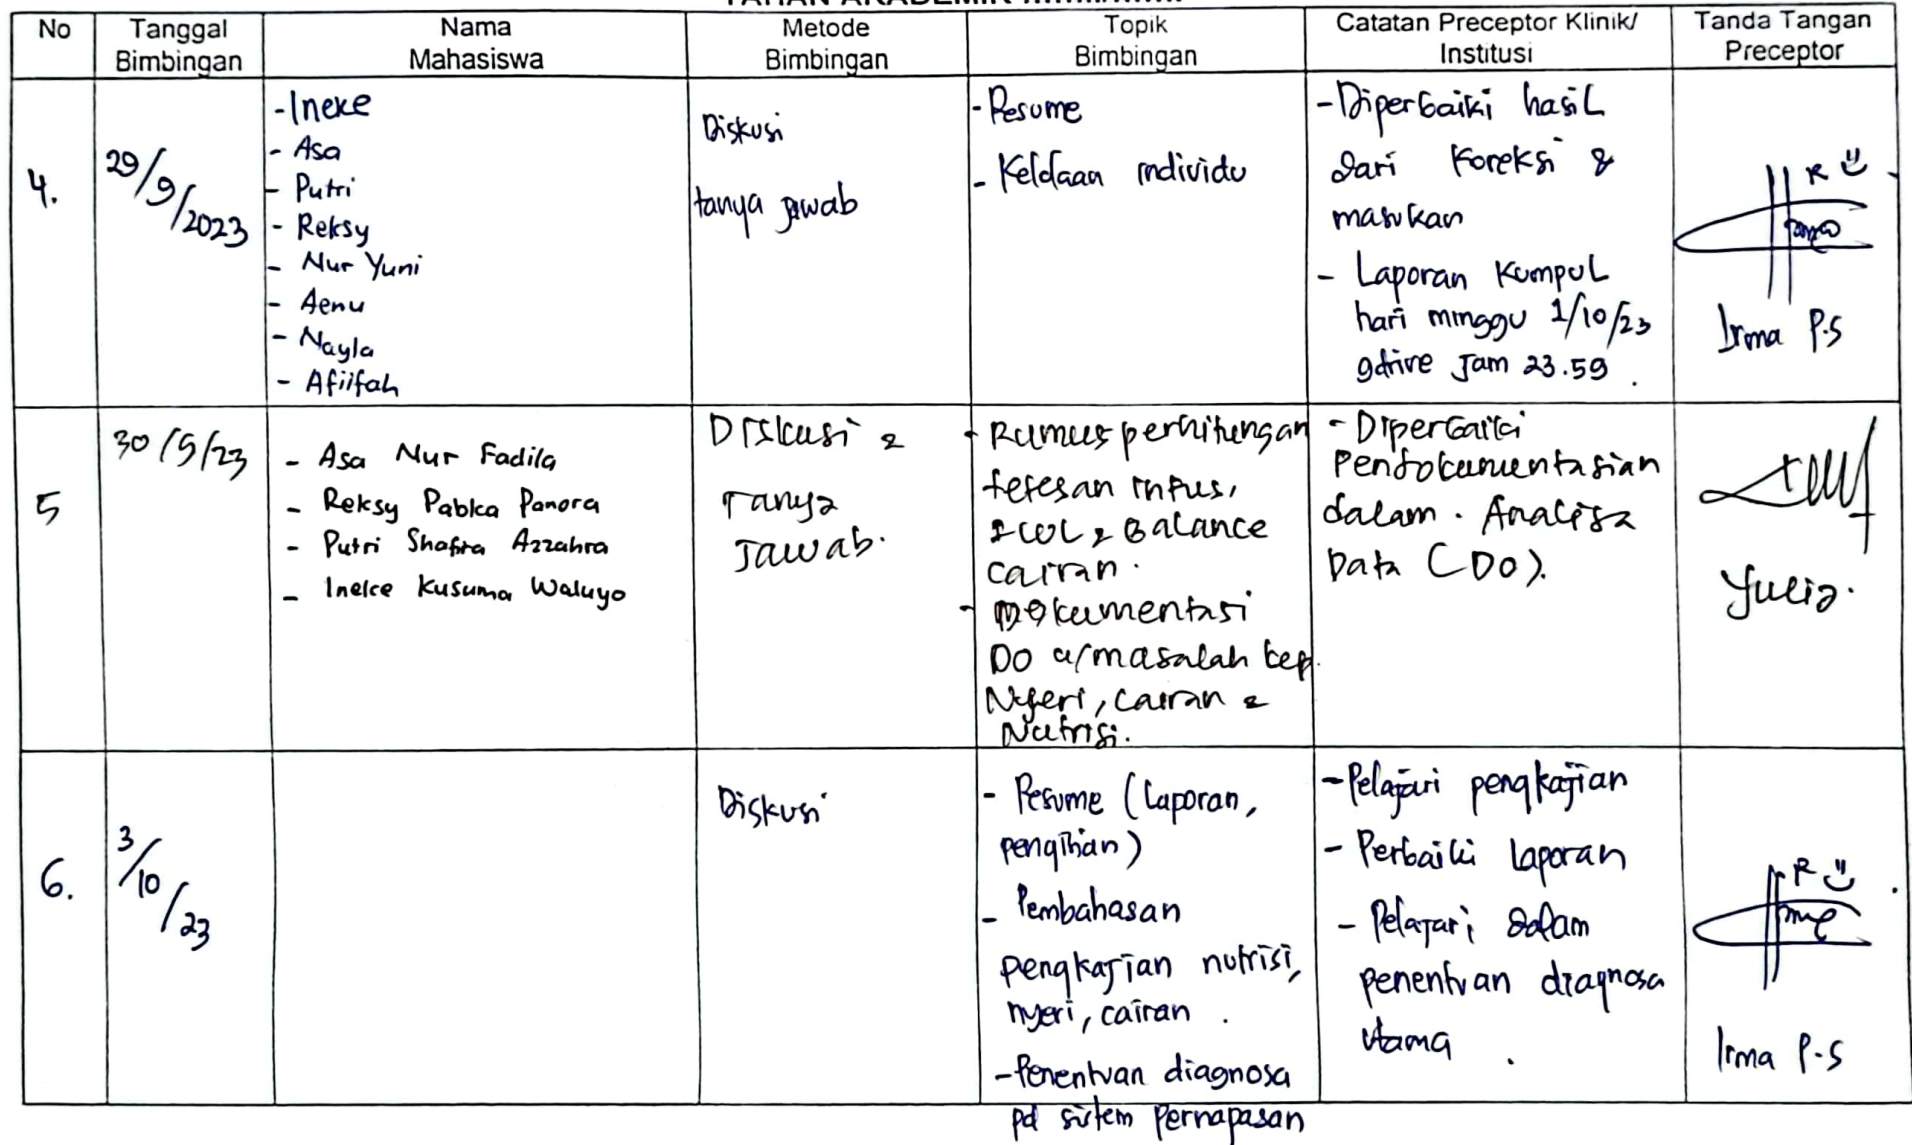 TAHAN AKADEMIK ............/............
No
Tanggal
Bimbingan
Nama
Mahasiswa
Metode
Bimbingan
Topik
Bimbingan
Catatan Preceptor Klinik/
Institusi
Tanda Tangan
Preceptor
4.
29/9/2023
- Ineke
- Asa
- Putri
- Reksy
- Nur Yuni
- Aenu
- Nayla
- Afiifah
Diskusi
tanya jawab
- Resume
- Kelolaan individu
- Diperbaiki hasil
dari koreksi &
masukan
- Laporan kumpul
hari minggu 1/10/23
gdrive jam 23.59.
Irma P.S
5
30/9/23
- Asa Nur Fadila
- Reksy Pabka Panora
- Putri Shafira Azzahra
- Ineke Kusuma Waluyo
Diskusi &
Tanya
Jawab.
- Rumus perhitungan
tetesan infus,
IWL & Balance
cairan.
- Dokumentasi
DO u/masalah kep.
Nyeri, cairan &
Nutrisi.
- Diperbaiki
Pendokumentasian
dalam. Analisa
Data (DO).
Yulia.
6.
3/10/23
Diskusi
- Resume (laporan,
pengisian)
- Pembahasan
pengkajian nutrisi,
nyeri, cairan.
- Penentuan diagnosa
pd sistem pernapasan
- Pelajari pengkajian
- Perbaiki laporan
- Pelajari dalam
penentuan diagnosa
utama.
Irma P.S